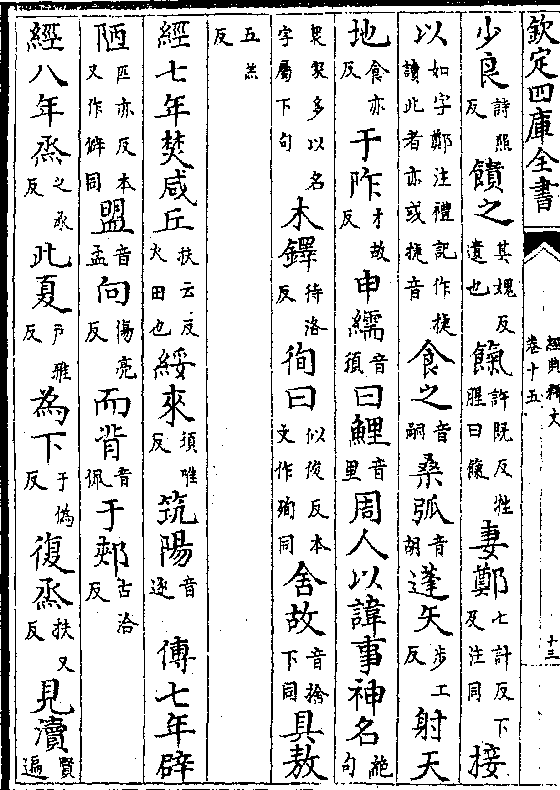 欽定四庫全書
經典釋文
卷十五
十三
少良詩照反饋之其媿反遺也餼許既反牲腥曰餼妻鄭七計反下及注同接
以如字鄭注禮記作捷讀此者亦或捷音食之音嗣桑弧音胡蓬矢步工反射天
地食亦反于阼才故反申繻音須曰鯉音里周人以諱事神名絶句
衆家多以名字屬下句木鐸待洛反徇曰似俊反本文作殉同舍故音捨下同具敖
五羔反
經七年焚咸丘扶云反火田也綏來須唯反筑陽音逐傳七年辟
陋匹亦反本又作僻同盟音孟向傷亮反而背音佩于郟古洽反
經八年烝之承反此夏戶雅反為下于偽反復烝扶又反見瀆賢遍